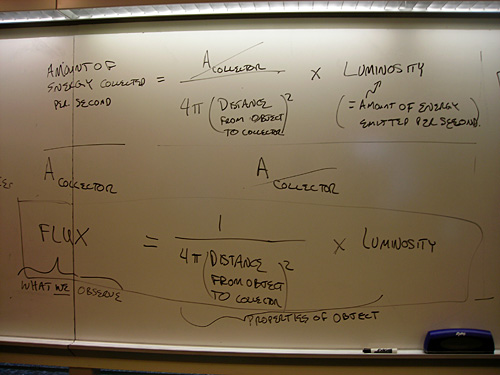 AMOUNT OF
ENERGY COLLECTED
PER SECOND
=
A COLLECTOR
4π (DISTANCE
FROM OBJECT
TO COLLECTOR)²
× LUMINOSITY
(= AMOUNT OF ENERGY
EMITTED PER SECOND)
A COLLECTOR
A COLLECTOR
FLUX
=
1
4π (DISTANCE
FROM OBJECT
TO COLLECTOR)²
× LUMINOSITY
WHAT WE OBSERVE
PROPERTIES OF OBJECT